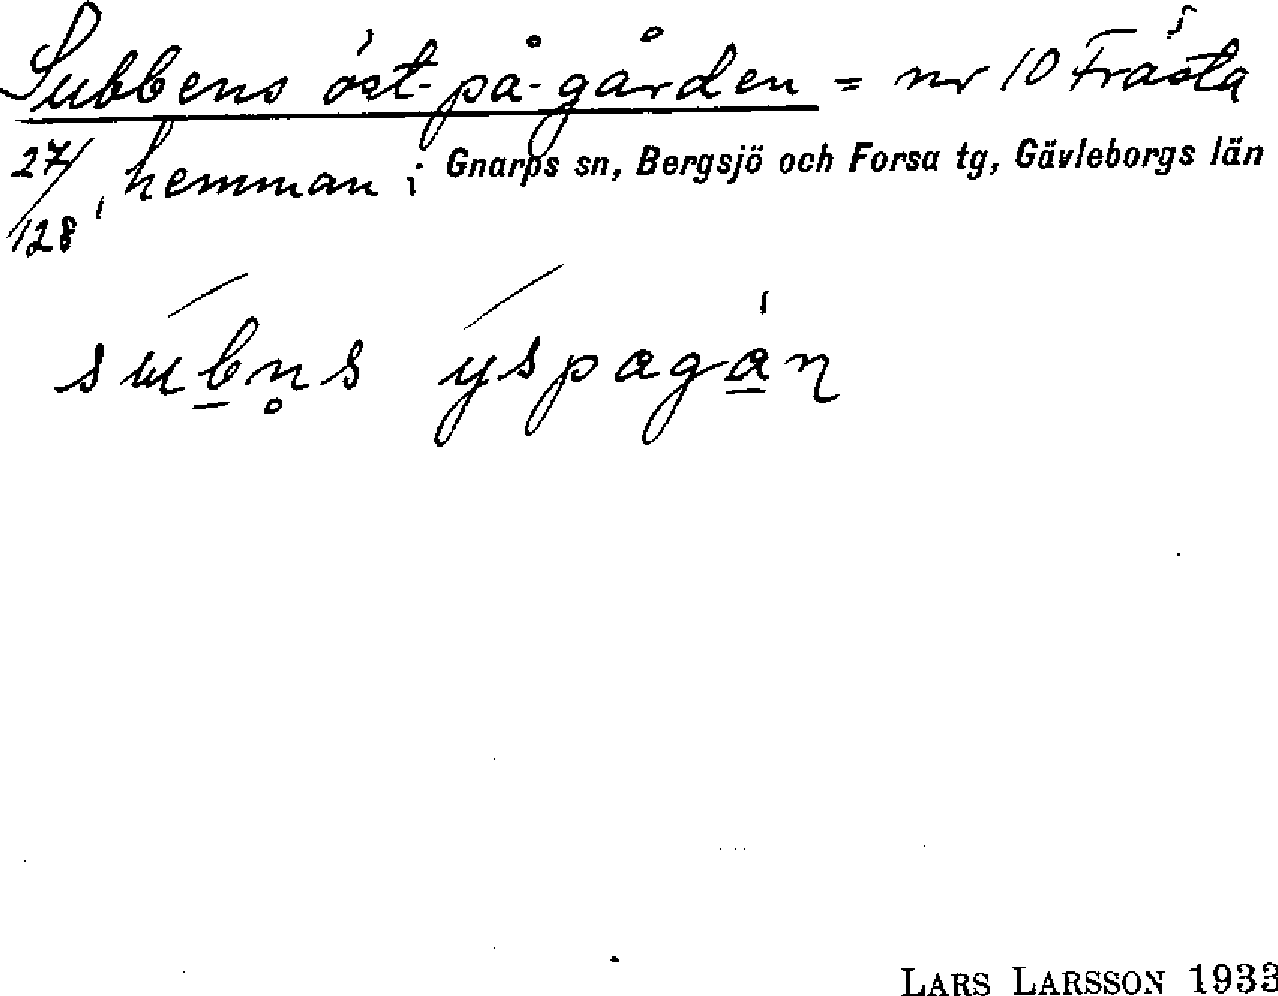 Subbens öst-på-gården = nr 10 Frästa
27/128, hemman i Gnarps sn, Bergsjö och Forsa tg, Gävleborgs län
sɯb̲n̥s yspaga̲ŋ
LARS LARSSON 1933